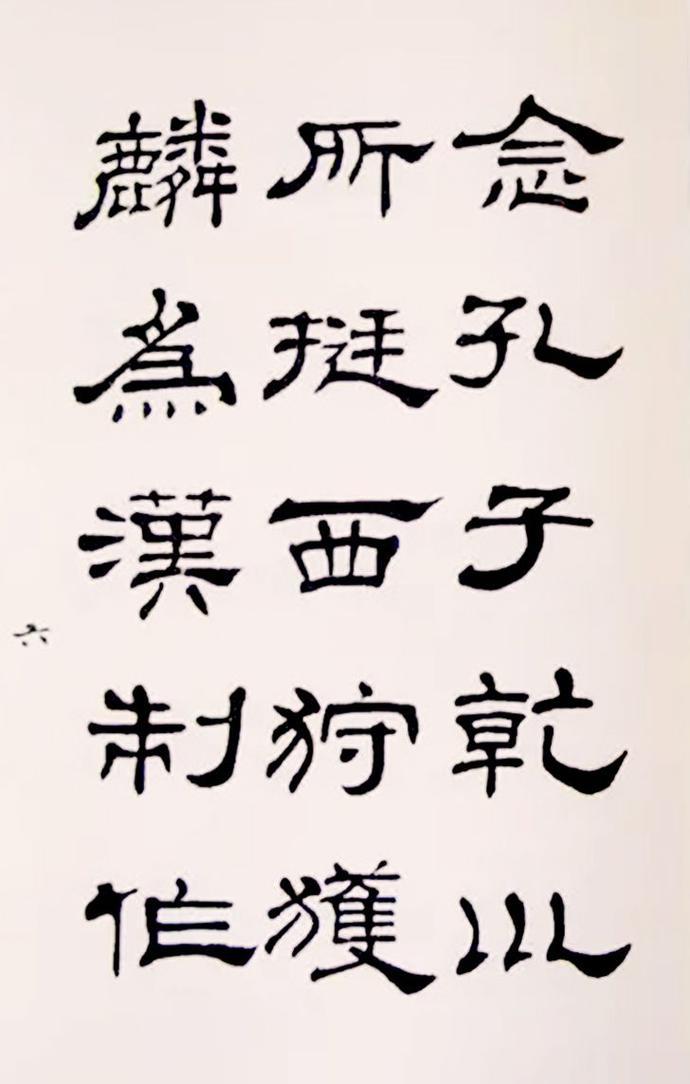 念孔子乾巛
所挻西狩獲
麟為漢制作
六